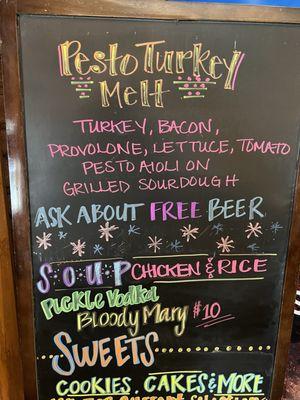 Pesto Turkey
Melt
TURKEY, BACON,
PROVOLONE, LETTUCE, TOMATO
PESTO AIOLI ON
GRILLED SOURDOUGH
ASK ABOUT FREE BEER
SOUP CHICKEN & RICE
Pickle Vodka
Bloody Mary $10
SWEETS
COOKIES, CAKES & MORE